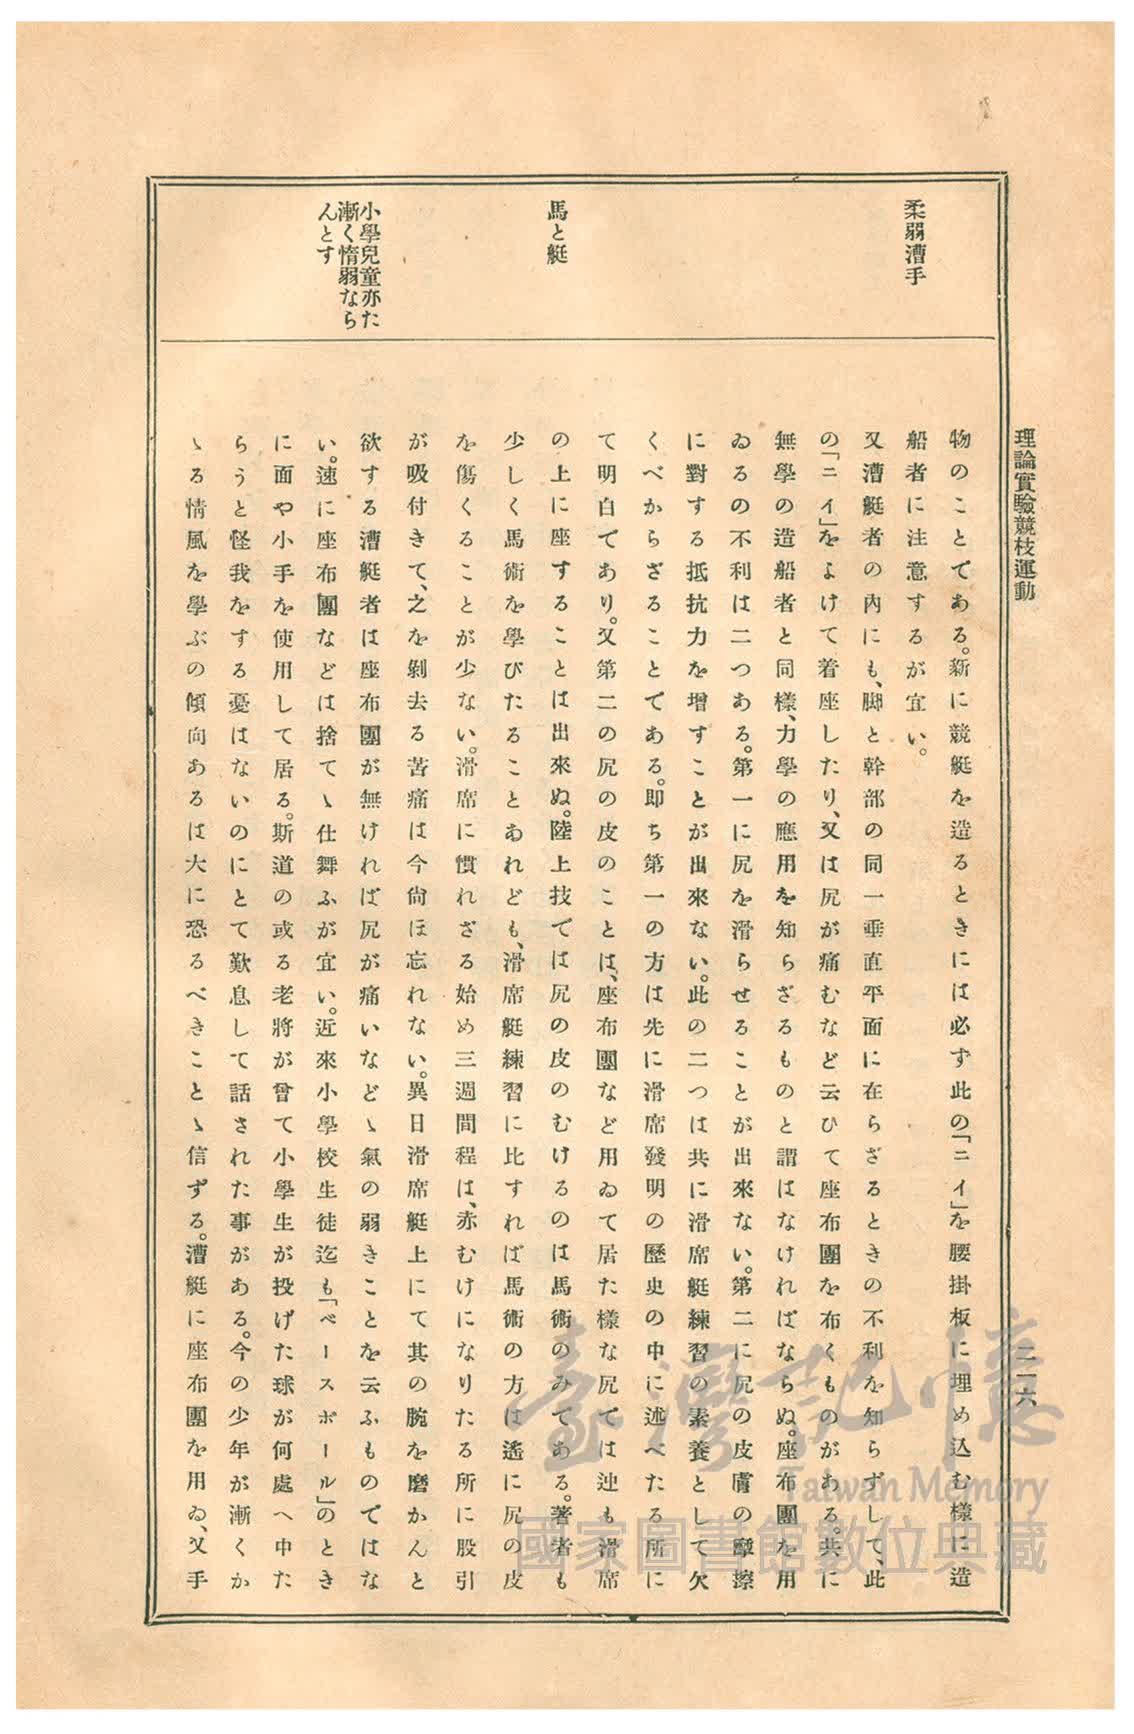 理論實驗競技運動
二一六
柔弱漕手
馬と艇
小學兒童亦た
漸く惰弱なら
んとす
物のことである。新に競艇を造るときには必ず此の「ニイ」を腰掛板に埋め込む樣に造
船者に注意するが宜い。
又漕艇者の內にも、脚と幹部の同一垂直平面に在らざるときの不利を知らずして、此
の「ニイ」をよけて着座したり、又は尻が痛むなど云ひて座布團を布くものがある。共に
無學の造船者と同樣、力學の應用を知らざるものと謂はなければならぬ。座布團を用
ゐるの不利は二つある。第一に尻を滑らせることが出來ない。第二に尻の皮膚の摩擦
に對する抵抗力を增すことが出來ない。此の二つは共に滑席艇練習の素養として欠
くべからざることである。卽ち第一の方は先に滑席發明の歷史の中に述べたる所に
て明白であり。又第二の尻の皮のことは、座布團など用ゐて居た樣な尻では迚も滑席
の上に座することは出來ぬ。陸上技では尻の皮のむけるのは馬術のみである。著者も
少しく馬術を學びたることあれども、滑席艇練習に比すれば馬術の方は遙に尻の皮
を傷くることが少ない。滑席に慣れざる始め三週間程は、赤むけになりたる所に股引
が吸付きて、之を剝去る苦痛は今尙ほ忘れない。異日滑席艇上にて其の腕を磨かんと
欲する漕艇者は座布團が無ければ尻が痛いなどゝ氣の弱きことを云ふものではな
い。速に座布團などは捨てゝ仕舞ふが宜い。近來小學校生徒迄も「ベースボール」のとき
に面や小手を使用して居る。斯道の或る老將が曾て小學生が投げた球が何處へ中た
らうと怪我をする憂はないのにとて歎息して話された事がある。今の少年が漸くか
ゝる情風を學ぶの傾向あるは大に恐るべきことゝ信ずる。漕艇に座布團を用ゐ、又手
臺灣記憶
Taiwan Memory
國家圖書館數位典藏